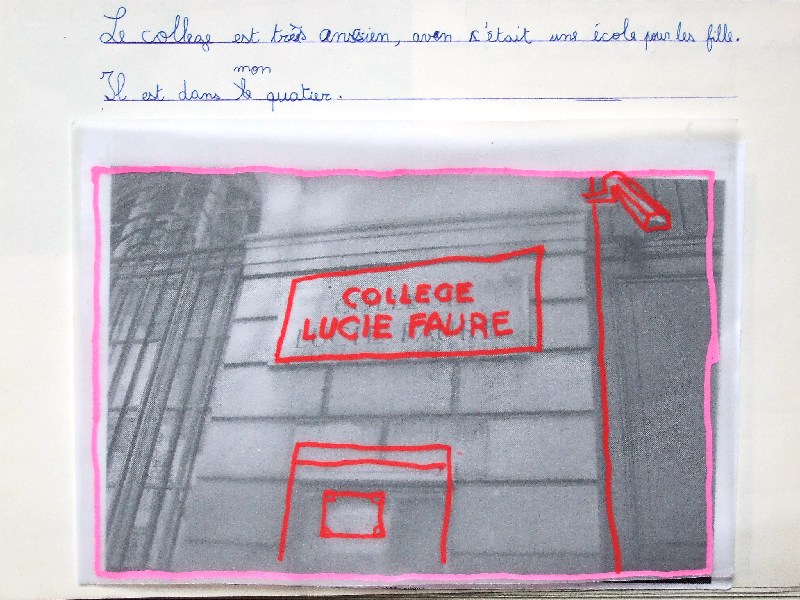 Le collège est très ansien, avan s'était une école pour les fille.
mon
Il est dans le quatier.
COLLEGE
LUCIE FAURE